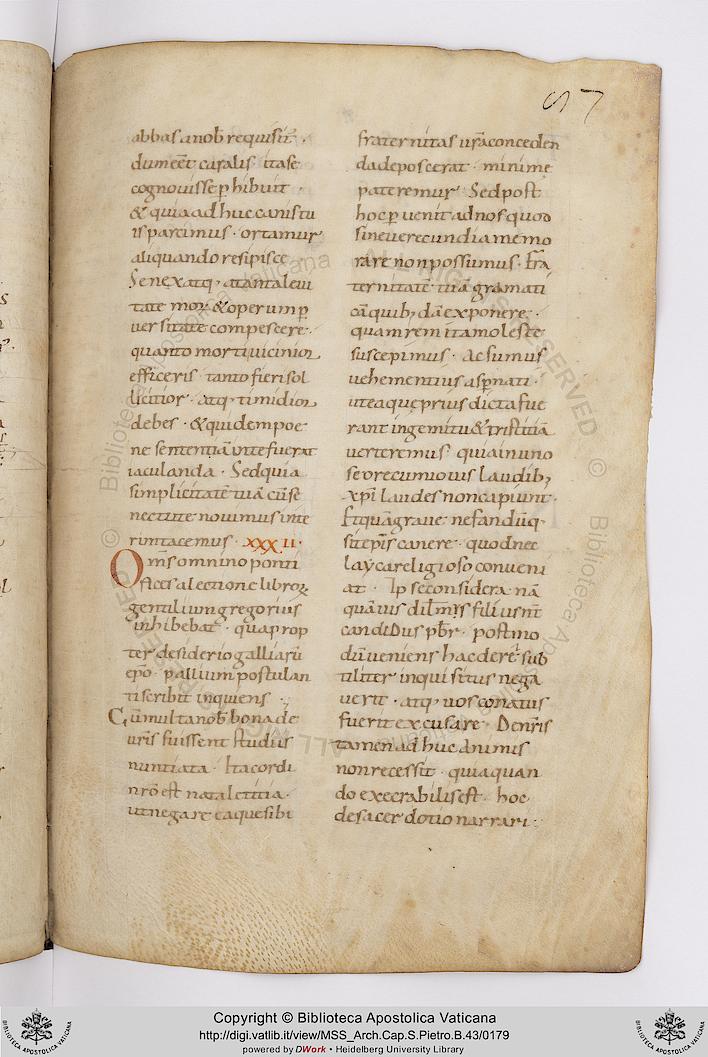 97
abbas a nob̄ requisit̄ ·
dum eēt curalis · itase
cognovisse ꝓhibuit ·
& quia adhuc canis tu
is parcimus · ortamur
aliquando resipisce
Senex atq; a tanta levi
tate mor̄ & operum ꝑ
versitate compescere ·
quanto morti vicinior
efficeris · tanto fieri sol
licitior · atq; timidior
debes · & quidem poe
ne sententiā in te fuerat
iaculanda · Sed quia
simplicitatē tuā cū se
nectute novimus inte
rim tacemus · XXXII ·
Om̄s omnino ponti
fices a lectione libroꝝ
gentilium gregorius
inhibebat · qua prop
ter desiderio galliarū
ep̄o pallium postulan
ti scribit inquiens ·
Cū multa nob̄ bona de
ur̄is fuissent studiis
nuntiata · Ita cordi
nr̄o est nata letitia ·
ut negare ea que sibi
fraternitas ur̄a conceden
da deposcerat · minime
pateremur · Sed post
hoc ꝑvenit ad nos quod
sine verecundia memo
rare non possumus · fr̄a
ternitatē tuā gramati
cā quib; dā exponere ·
quam rem ita moleste
suscepimus · ac sumus
vehementius asp̄nati ·
ut ea que prius dicta fue
rant in gemitu & tristitiā
verteremus · quia in uno
se ore cum iovis laudib;
xp̄i laudes non capiunt ·
Et quā grave nefandūq;
sit ep̄is canere · quod nec
layco religioso conveni
at · Ip̄se considera · nā
quāvis dil̄m̄s filius nr̄
candidus pb̄r · postmo
dū veniens hac de re sub
tiliter inquisitus nega
verit · atq; vos conatus
fuerit excusare · De nr̄is
tamen adhuc animis
non recessit · quia quan
do execrabilis est · hoc
de sacerdotio narrari ·
Copyright © Biblioteca Apostolica Vaticana
http://digi.vatlib.it/view/MSS_Arch.Cap.S.Pietro.B.43/0179
powered by DWork • Heidelberg University Library